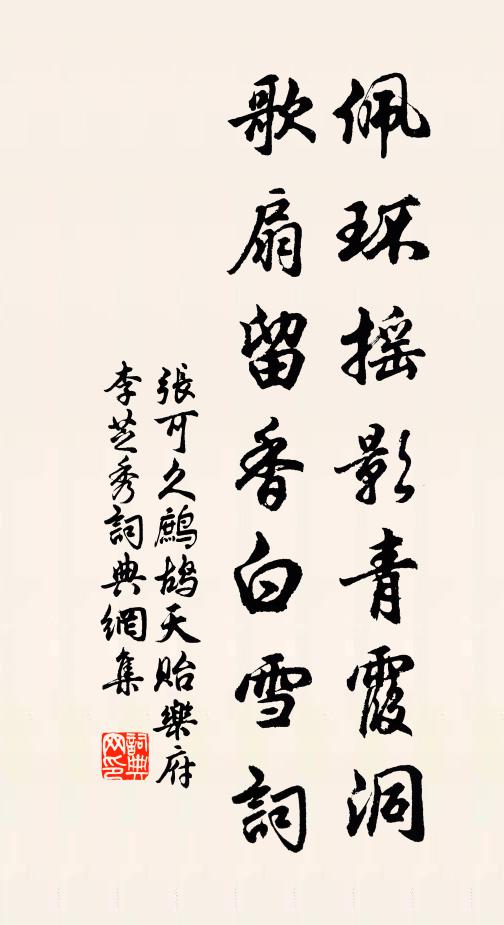 佩環搖影青霞洞
歌扇留香白雪詞
張可久鷓鴣天貽樂府
李芝秀詞典網集
詞典
网印